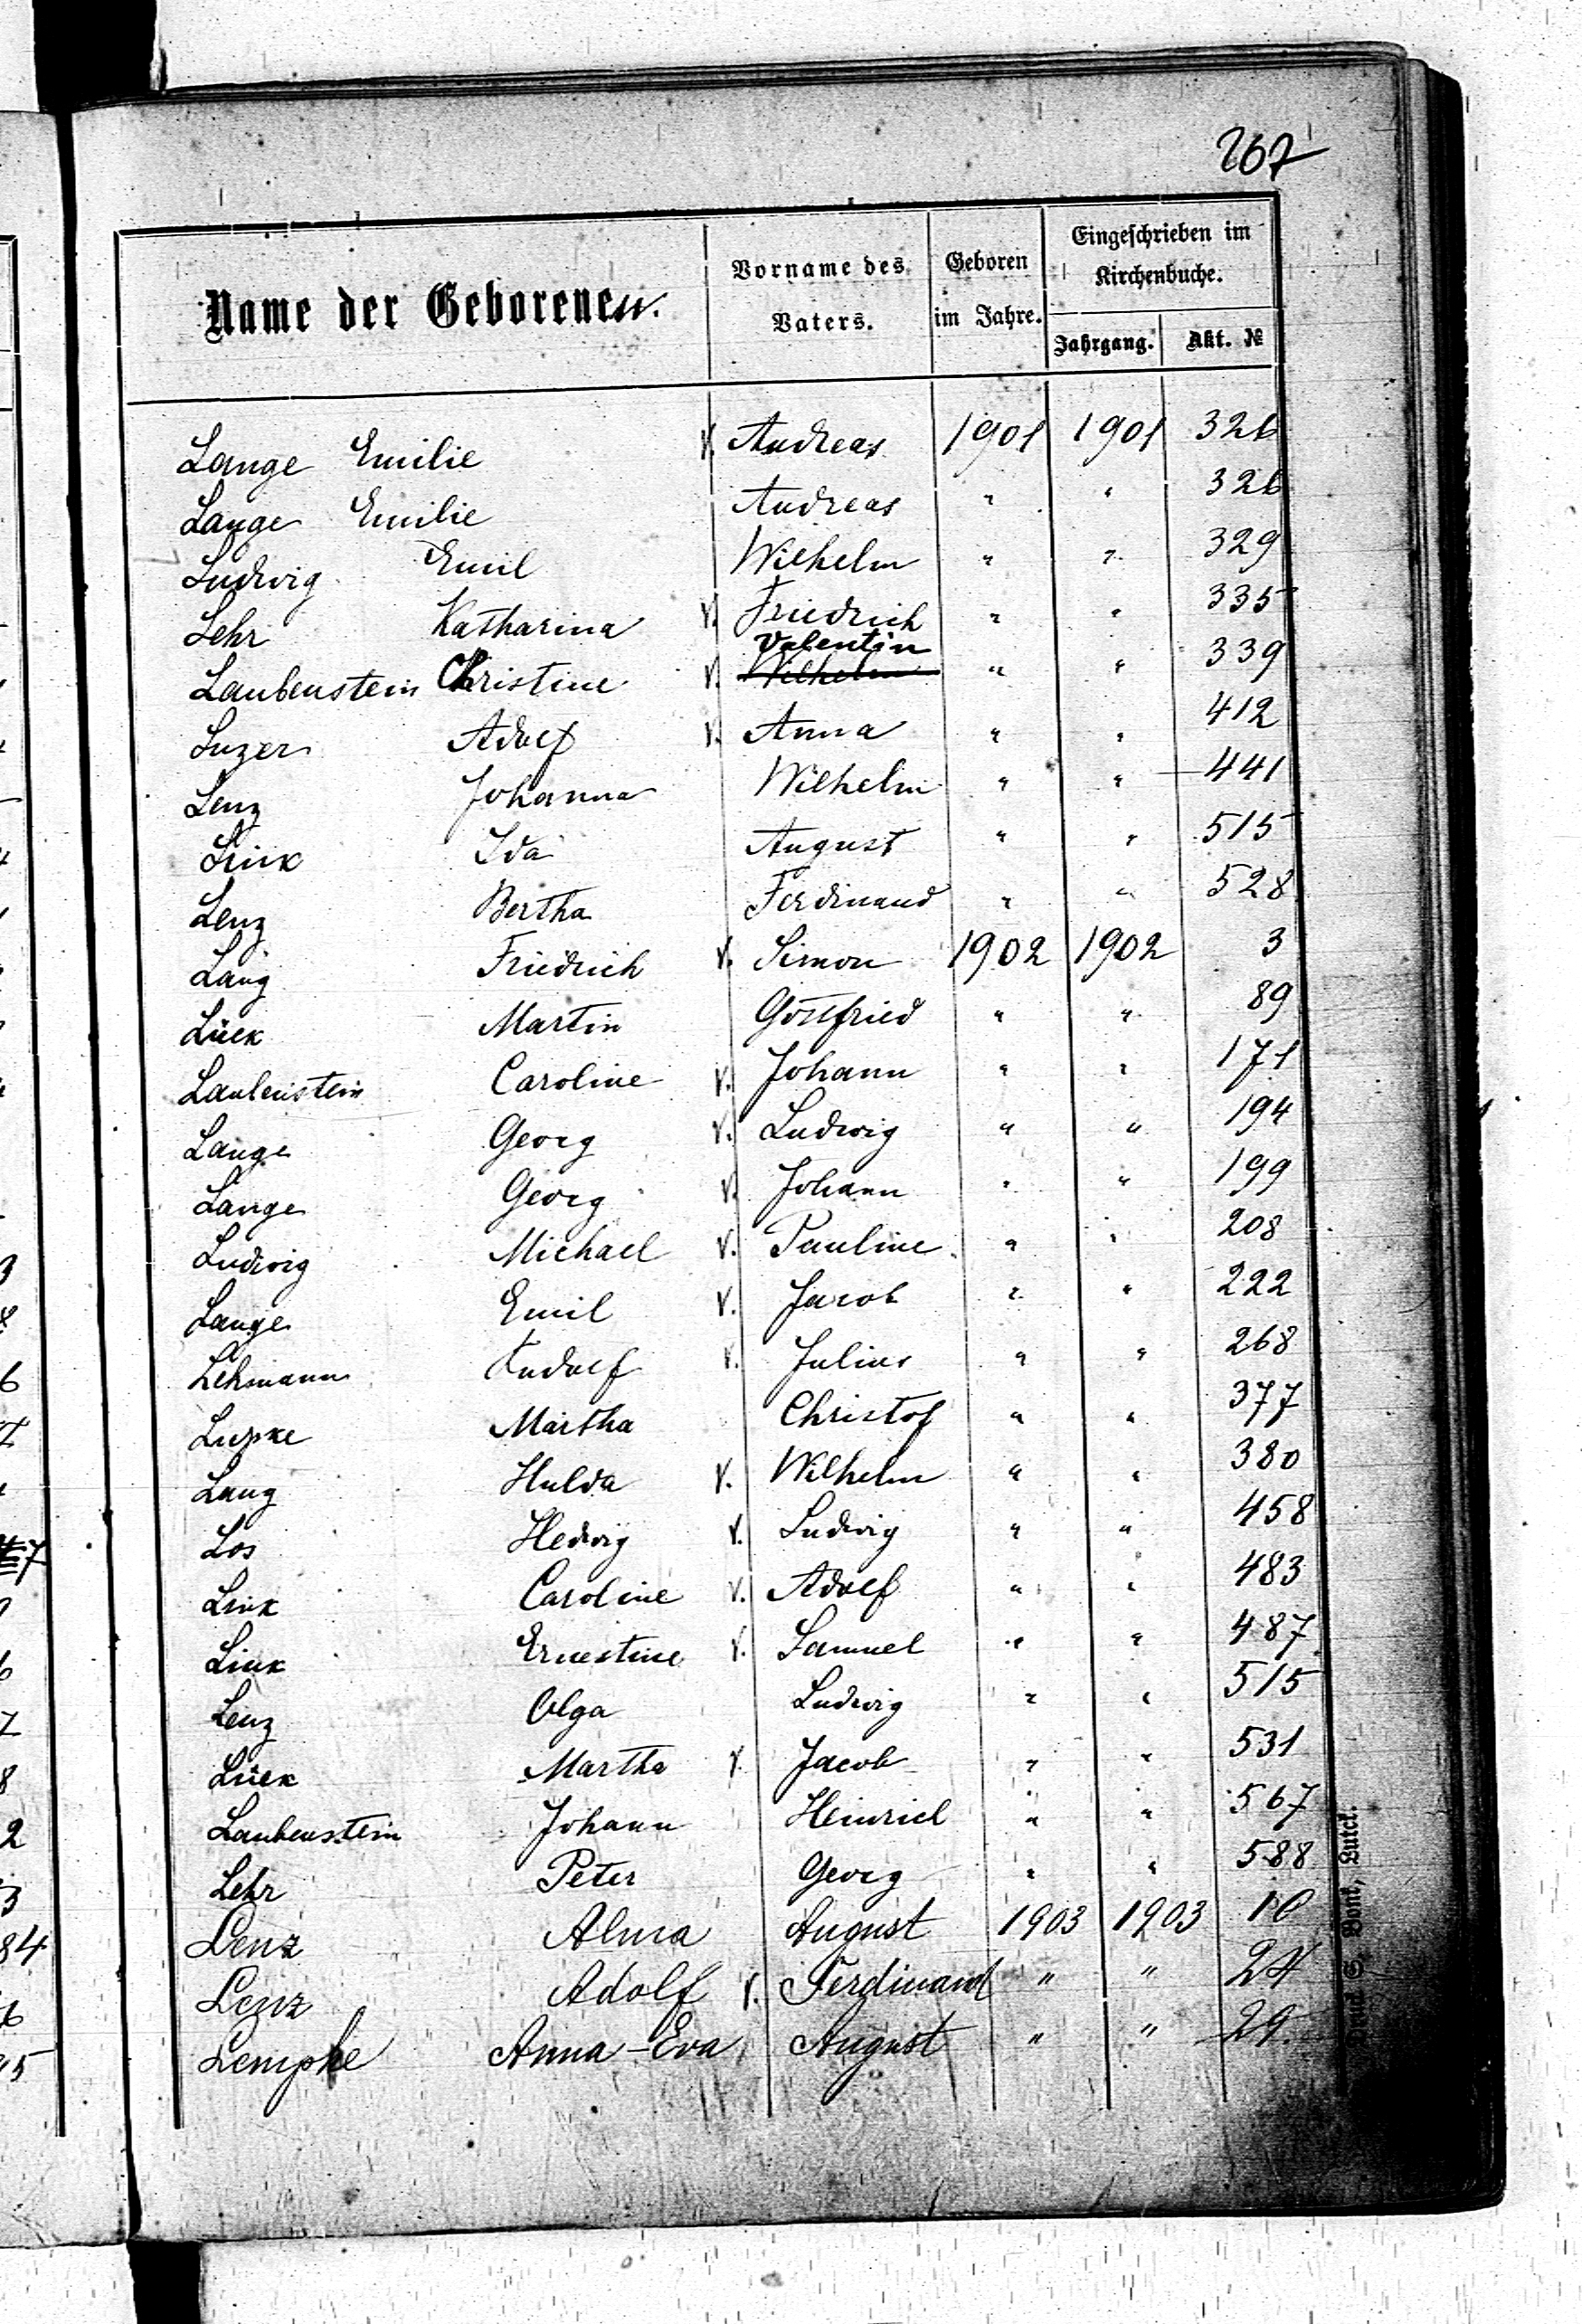 267
Name der Geborenen.
Vorname des Vaters.
Geboren im Jahre.
Eingeschrieben im Kirchenbuche.
Jahrgang. Akt. №
Lange Emilie V. Andreas 1901 1901 326
Lange Emilie Andreas " " 326
Ludwig Emil Wilhelm " " 329
Lehr Katharina V. Friedrich " " 335
Valentin
Laubenstein Christine V. Wilhelm " " 339
Luzer Adolf V. Anna " " 412
Lenz Johanna Wilhelm " " 441
Link Ida August " " 515
Lenz Bertha Ferdinand " " 528
Lang Friedrich V. Simon 1902 1902 3
Lück Martin Gottfried " " 89
Laubenstein Caroline V. Johann " " 171
Lange Georg V. Ludwig " " 194
Lange Georg V. Johann " " 199
Ludwig Michael V. Pauline " " 208
Lange Emil V. Jacob " " 222
Lehmann Rudolf V. Julius " " 268
Lupke Martha Christof " " 377
Lang Hulda V. Wilhelm " " 380
Los Hedwig V. Ludwig " " 458
Link Caroline V. Adolf " " 483
Link Ernestine V. Samuel " " 487
Lenz Olga Ludwig " " 515
Lück Martha V. Jacob " " 531
Laubenstein Johann Heinrich " " 567
Lehr Peter Georg " " 588
Lenz Alma August 1903 1903 10
Lenz Adolf V. Ferdinand " " 24
Lempke Anna-Eva August " " 29.
Bont, Lutck.